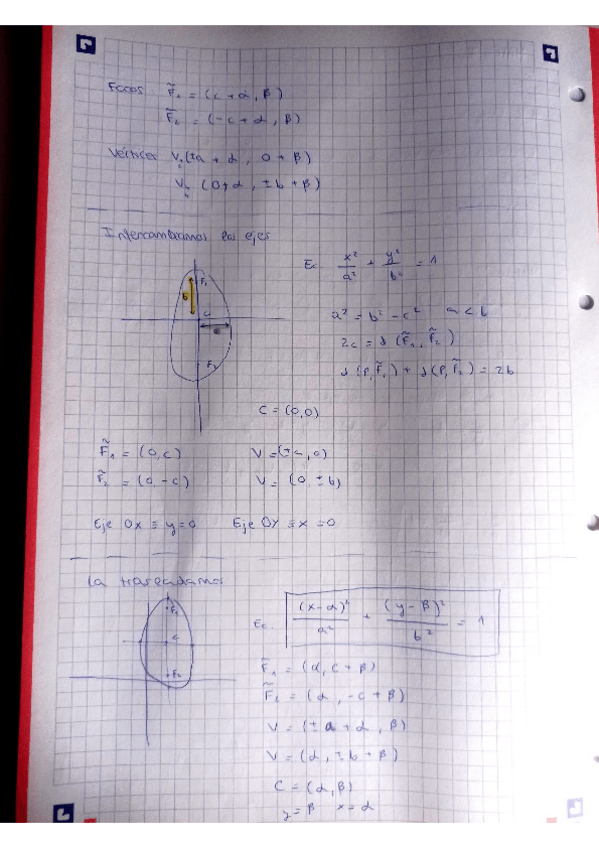 Focos F̃₁ = (c + α, β)
F̃₂ = (-c + α, β)
Vértices V (±a + α, 0 + β)
V (0 + α, ±b + β)
Intercambiamos los ejes
F₁
b
C
a
F₂
Ec. x²/a² + y²/b² = 1
a² = b² - c² a < b
2c = d (F̃₁, F̃₂)
d (P, F̃₁) + d (P, F̃₂) = 2b
C = (0,0)
F̃₁ = (0, c) V = (±a, 0)
F̃₂ = (0, -c) V = (0, ±b)
Eje OX ≡ y=0 Eje OY ≡ x=0
La trasladamos
F₁
C
F₂
Ec. (x-α)²/a² + (y-β)²/b² = 1
F̃₁ = (α, c + β)
F̃₂ = (α, -c + β)
V = (±a + α, β)
V = (α, ±b + β)
C = (α, β)
y = β x = α